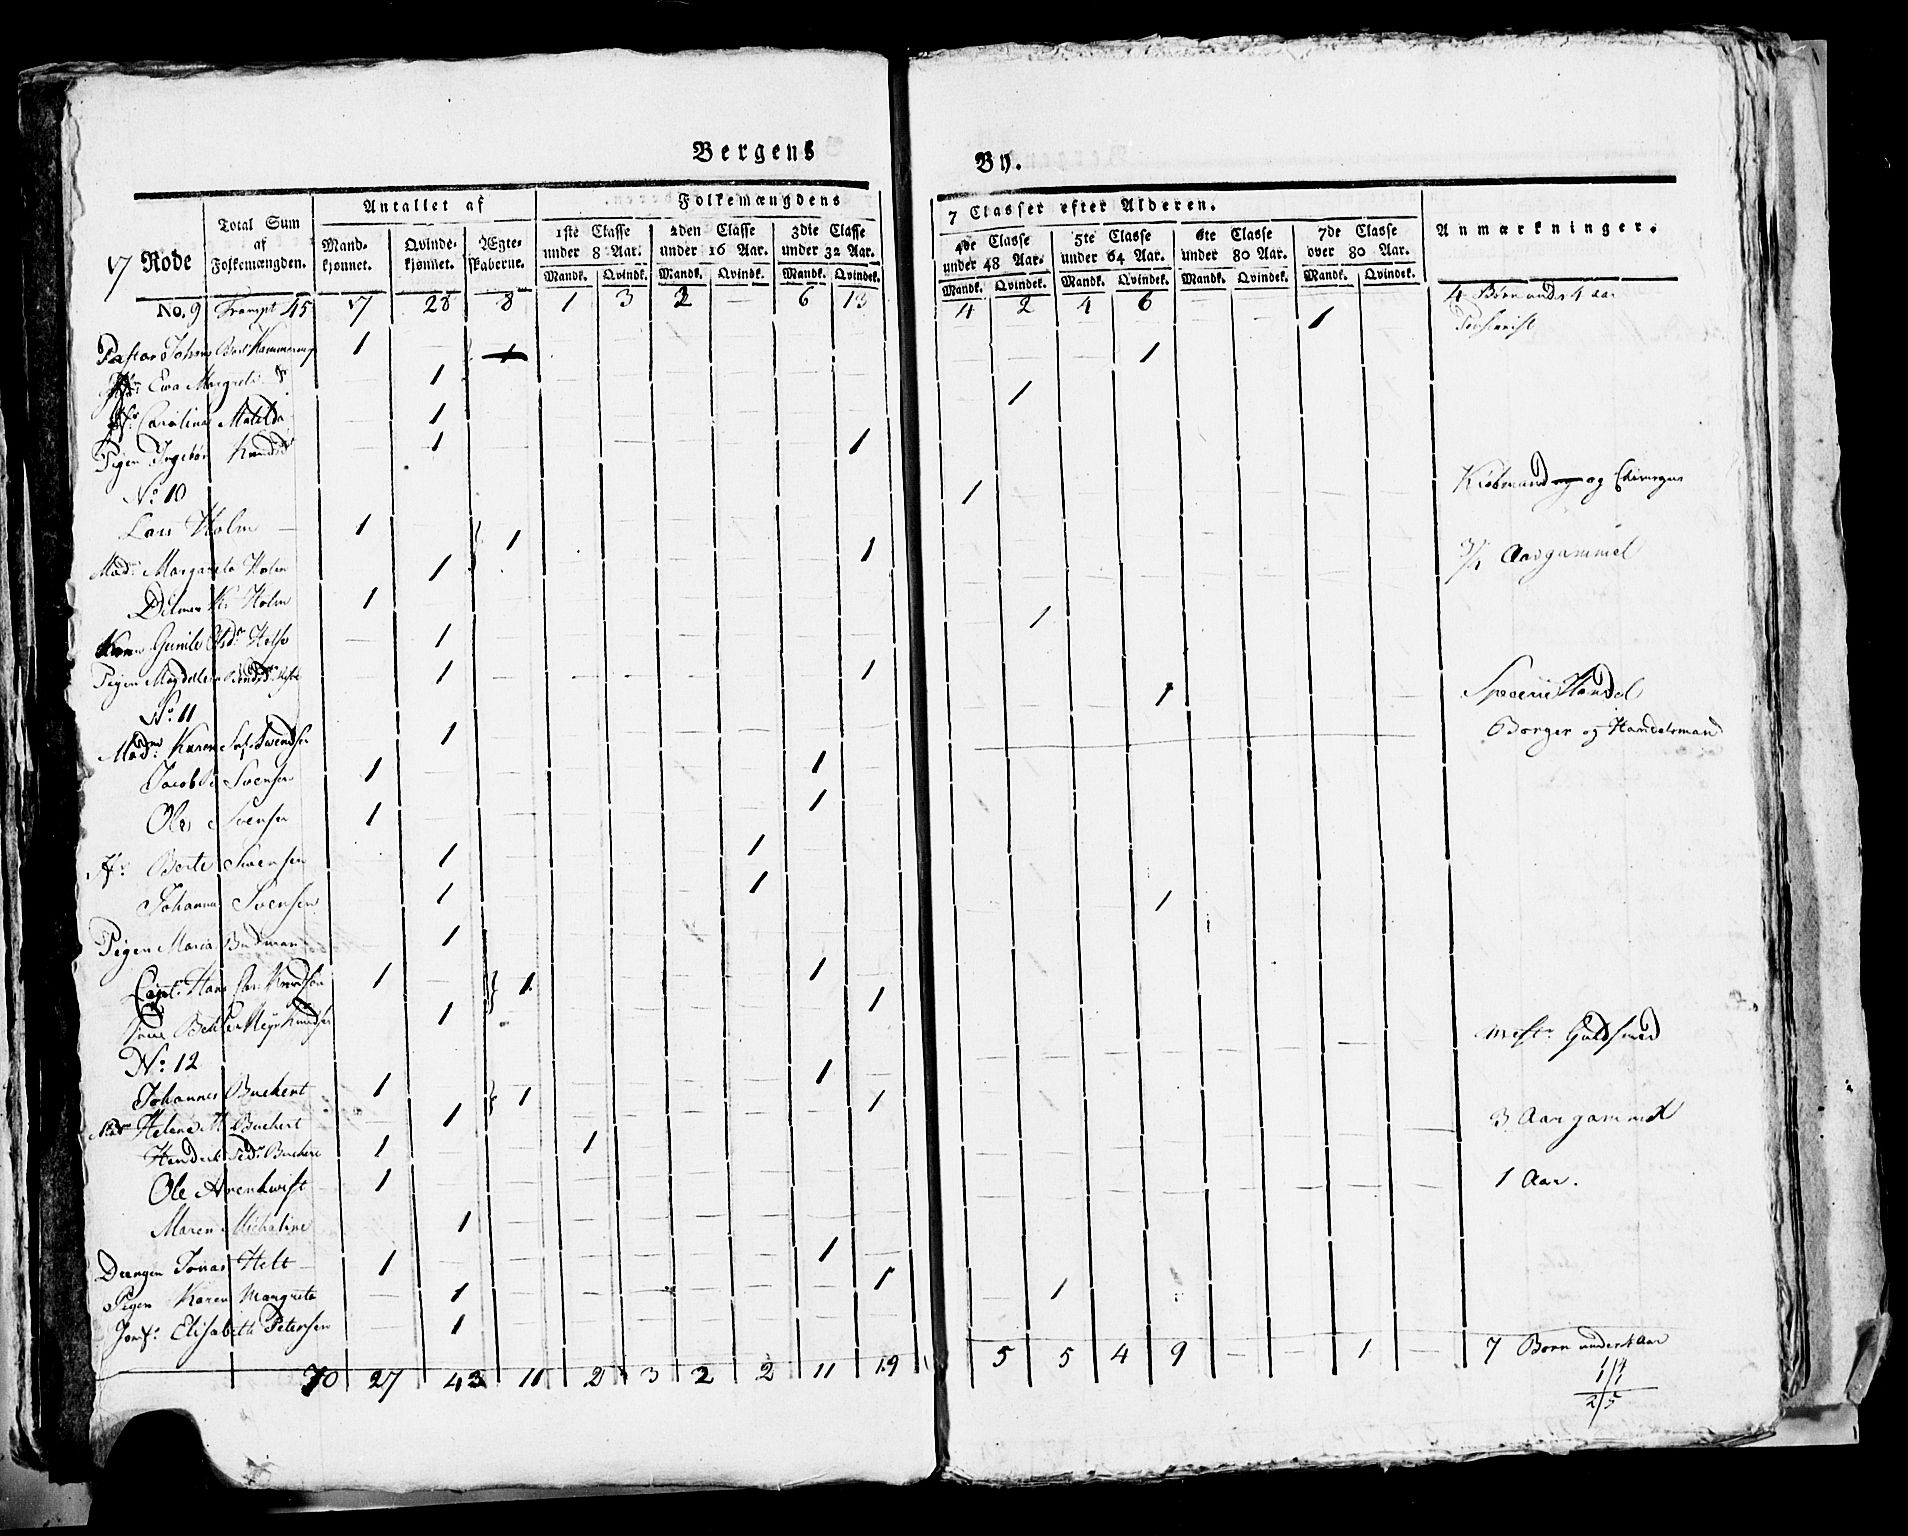 Bergens By.
17 Rode
Total Sum af Folkemængden.
Antallet af
Mandkjønnet. Qvindekjønnet. Ægteskaberne.
Folkemængdens 7 Classer efter Alderen.
1ste Classe under 8 Aar. 2den Classe under 16 Aar. 3die Classe under 32 Aar. 4de Classe under 48 Aar. 5te Classe under 64 Aar. 6te Classe under 80 Aar. 7de Classe over 80 Aar.
Mandk. Qvindek. Mandk. Qvindek. Mandk. Qvindek. Mandk. Qvindek. Mandk. Qvindek. Mandk. Qvindek. Mandk. Qvindek.
Anmærkninger.
No. 9 Transpt 45 17 28 8 1 3 2 — 6 13 4 2 4 6 4 Børn under 4 aar
Pastor Johan 1 1
Jfr: Eva Margrete 1 1
Jfr: Caroline Matilda 1 1
Pigen Ingebor Knudsd 1 1
No: 10
Lars Holm 1 1 1 Kiøbmand og Chirurgus
Mad: Margareta Holm 1 1
Ditmer Holm 1 3/4 Aargammel
Gunile Olsdr 1 1
Pigen Magdelena 1 1
No: 11
Madm: Karen Svendsen 1 1 Specerie Handel
Jacob Svensen 1 1 Borger og Handelsmand
Ole Svensen 1 1
Jfr: Berte Svensen 1 1
Johanna Svensen 1 1
Pigen Maria Budman 1 1
Capt: Hans Knudsøn 1 1 1
1 1
No: 12
Johannes Buchert 1 1 1 Mestr Guldsmed
Helene M Buchert 1 1
Hendrik Buchert 1 1 3 Aar gammel
Ole Arenkwist 1
Maren Michaline 1 1 Aar.
Drengen Jonas Helt 1 1
Pigen Karen Margreta 1 1
Jomf: Elisabeth Petersen 1 1
70 27 43 11 2 3 2 2 11 19 5 5 4 9 — — 1 — 7 Børn under 4 Aar
2/5